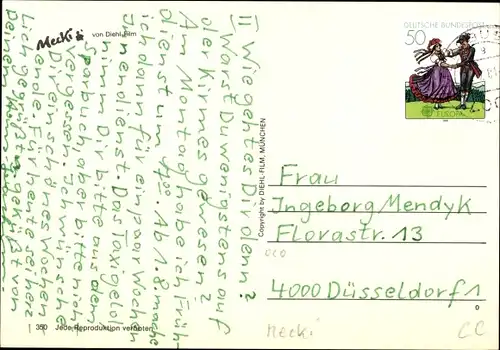 Mecki von Diehl-Film
II Wie geht es Dir denn?
Warst Du wenigstens auf
der Kirmes gewesen?
Am Motog habe ich Früh-
dienst um 7⁰⁰. Ab 1.8 mache
ich dann für ein paar Wochen
Innendienst. Das Taxigeld
nimm Dir bitte aus dem
Sparbuch aber bitte nicht
vergessen. Ich wünsche
Dir ein schönes Wochen-
ende. Für heute sei herz-
lich gegrüßt u. geküßt von
Deinem
350 Jede Reproduktion verboten
Copyright by DIEHL-FILM, MÜNCHEN
DEUTSCHE BUNDESPOST
50
EUROPA
Frau
Ingeborg Mendyk
Florastr. 13
4000 Düsseldorf 1
Mecki
CC